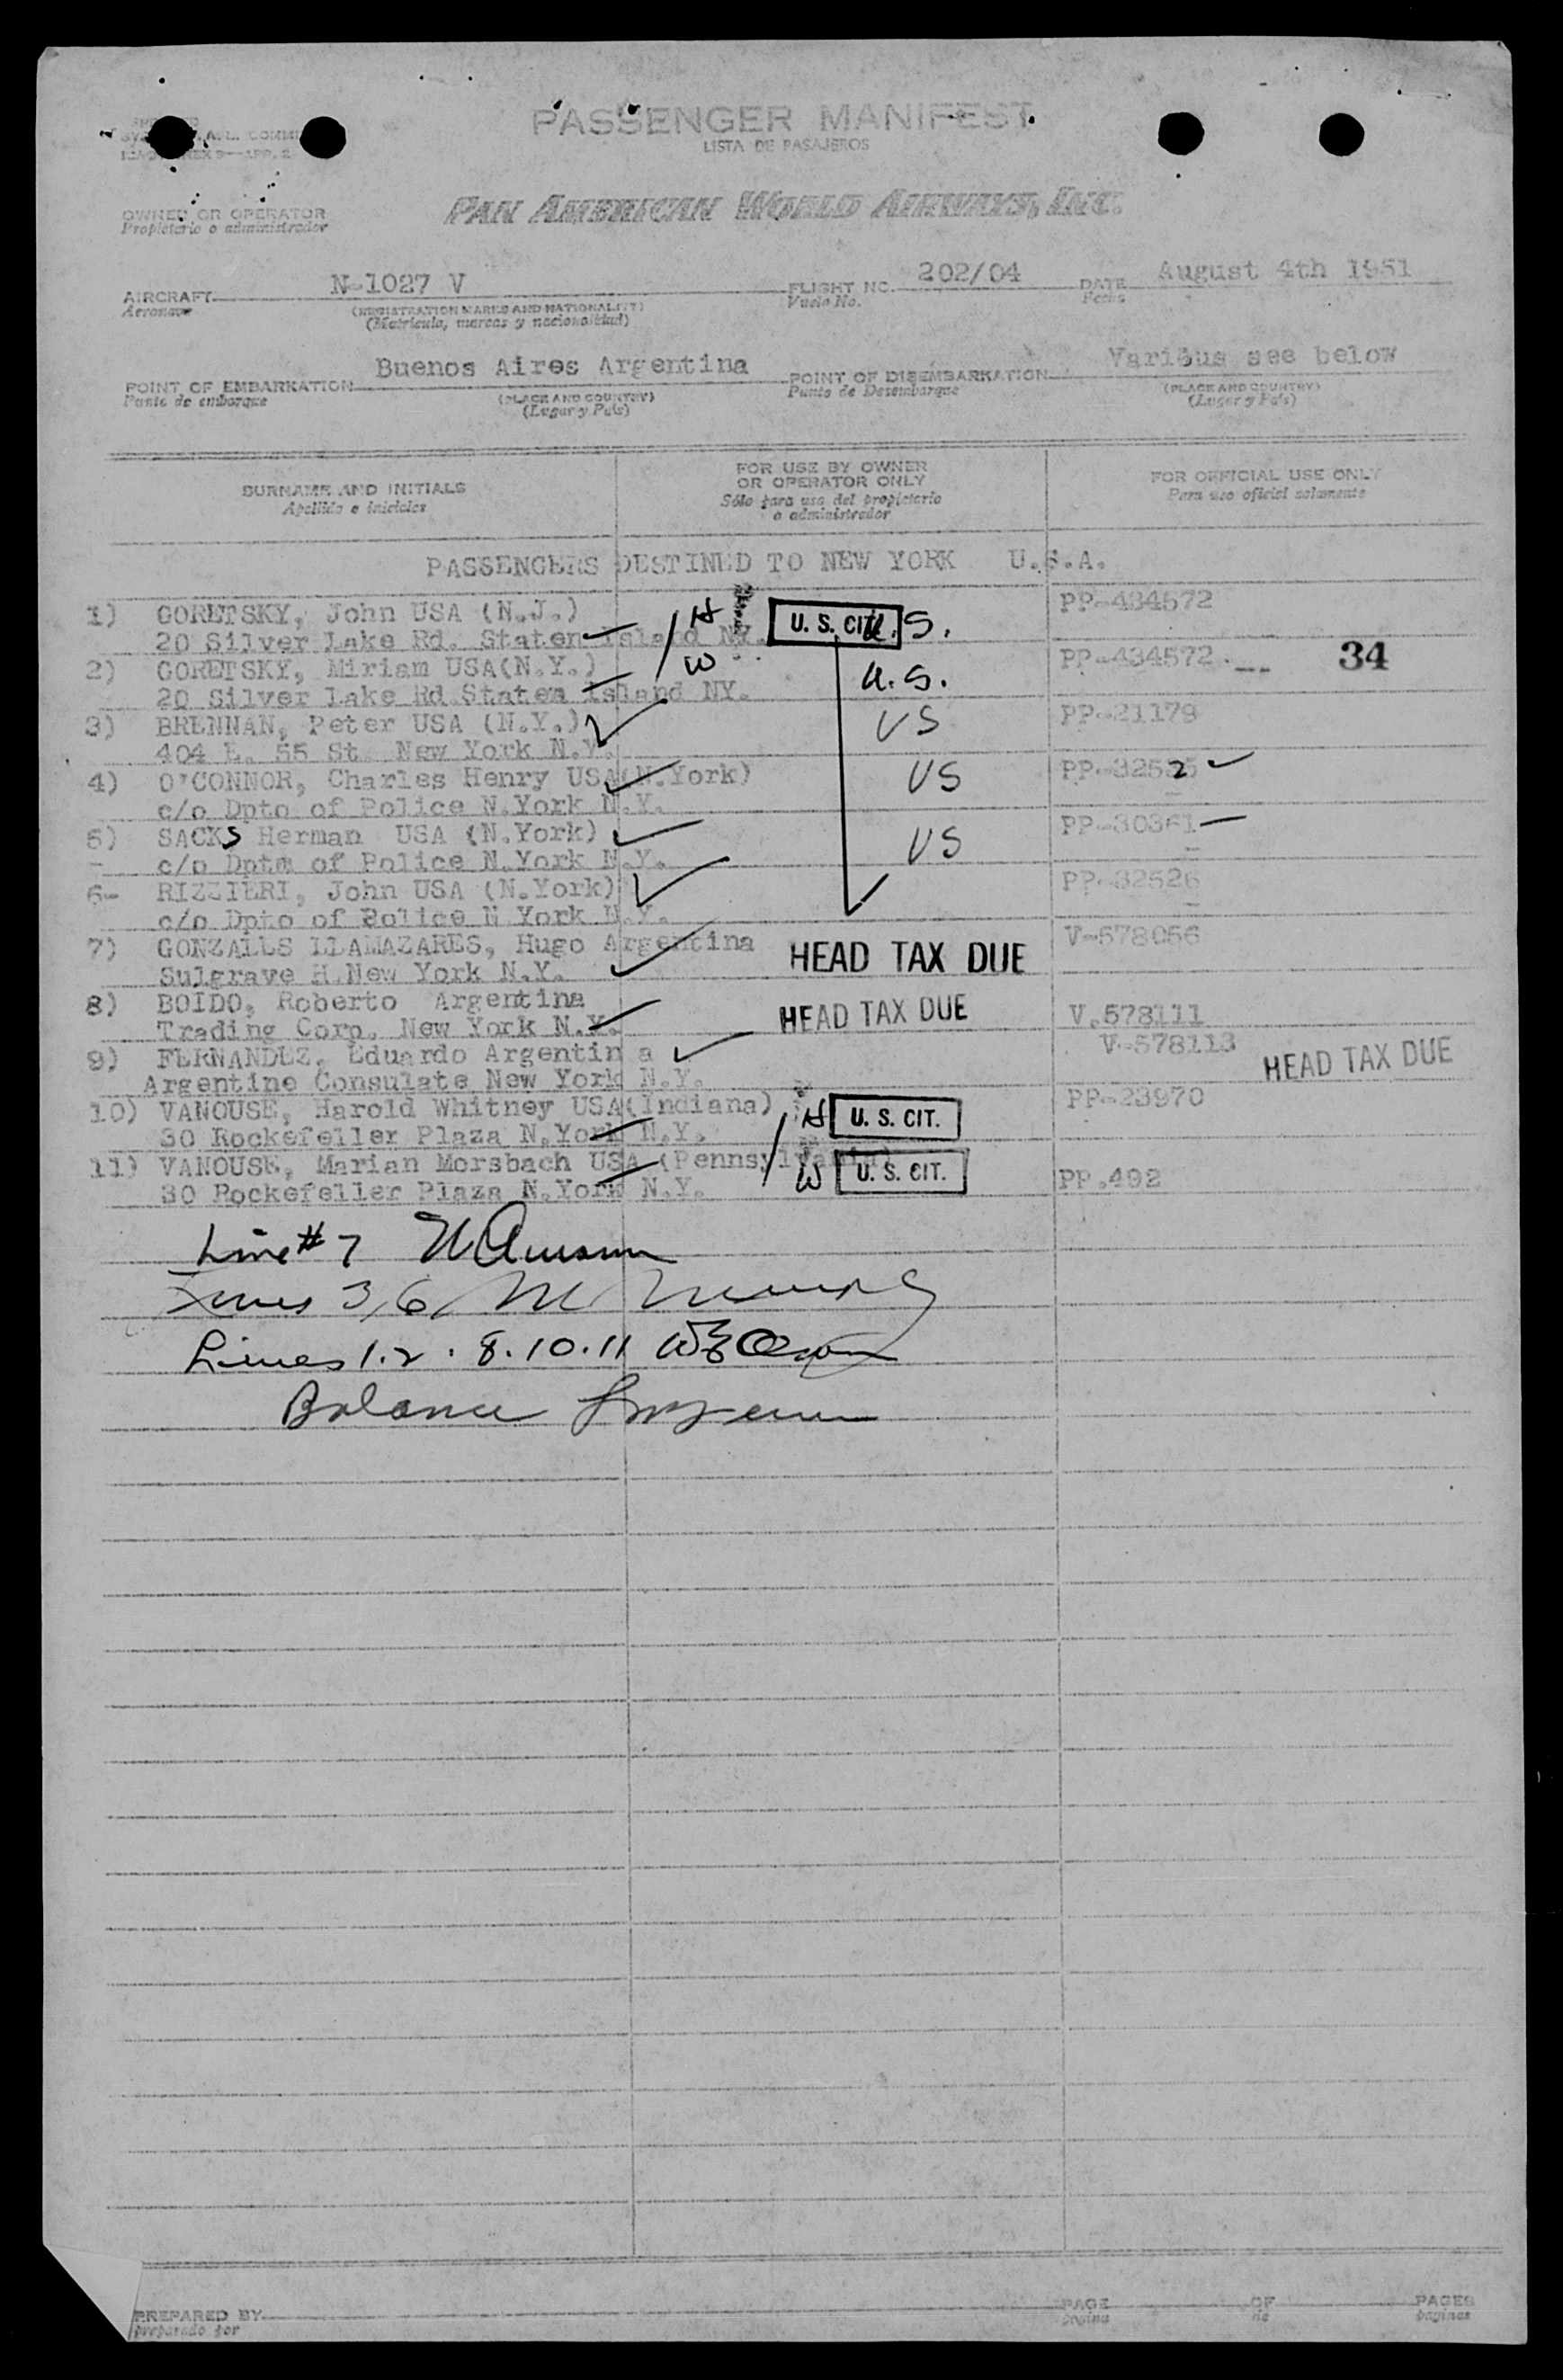 PASSENGER MANIFEST
LISTA DE PASAJEROS
PAN AMERICAN WORLD AIRWAYS, INC.
OWNER OR OPERATOR
Propietario o administrador
AIRCRAFT N-1027 V FLIGHT NO. 202/04 DATE August 4th 1951
Aeronave (REGISTRATION MARKS AND NATIONALITY) Vuelo No. Fecha
(Matricula, marcas y nacionalidad)
POINT OF EMBARKATION Buenos Aires Argentina POINT OF DISEMBARKATION Various see below
Punto de embarque (PLACE AND COUNTRY) Punto de Desembarque (PLACE AND COUNTRY)
(Lugar y País) (Lugar y País)
SURNAME AND INITIALS FOR USE BY OWNER OR OPERATOR ONLY FOR OFFICIAL USE ONLY
Apellido e iniciales Sólo para uso del propietario o administrador Para uso oficial solamente
PASSENGERS DESTINED TO NEW YORK U.S.A.
1) GORETSKY, John USA (N.J.) H U. S. CIT. U.S. PP-434572
20 Silver Lake Rd. Staten Island NY.
2) GORETSKY, Miriam USA(N.Y.) W U.S. PP-434572 34
20 Silver Lake Rd Staten Island NY.
3) BRENNAN, Peter USA (N.Y.) US PP-21179
404 E. 55 St. New York N.Y.
4) O'CONNOR, Charles Henry USA(N.York) US PP-32525
c/o Dpto of Police N.York N.Y.
5) SACKS Herman USA (N.York) US PP-30361
c/o Dptm of Police N.York N.Y.
6- RIZZIERI, John USA (N.York) PP-32526
c/o Dpto of Police N York N.Y.
7) GONZALES LLAMAZARES, Hugo Argentina HEAD TAX DUE V-578056
Sulgrave H.New York N.Y.
8) BOIDO, Roberto Argentina HEAD TAX DUE V.578111
Trading Corp. New York N.Y.
9) FERNANDEZ, Eduardo Argentin a V-578113 HEAD TAX DUE
Argentine Consulate New York N.Y.
10) VANOUSE, Harold Whitney USA(Indiana) H U. S. CIT. PP-23970
30 Rockefeller Plaza N.York N.Y.
11) VANOUSE, Marian Morsbach USA (Pennsylvania) W U. S. CIT. PP.492
30 Rockefeller Plaza N.York N.Y.
Line # 7
Lines 3,6,
Lines 1.2.8.10.11
Balance
PREPARED BY PAGE OF PAGES
preparado por página de páginas